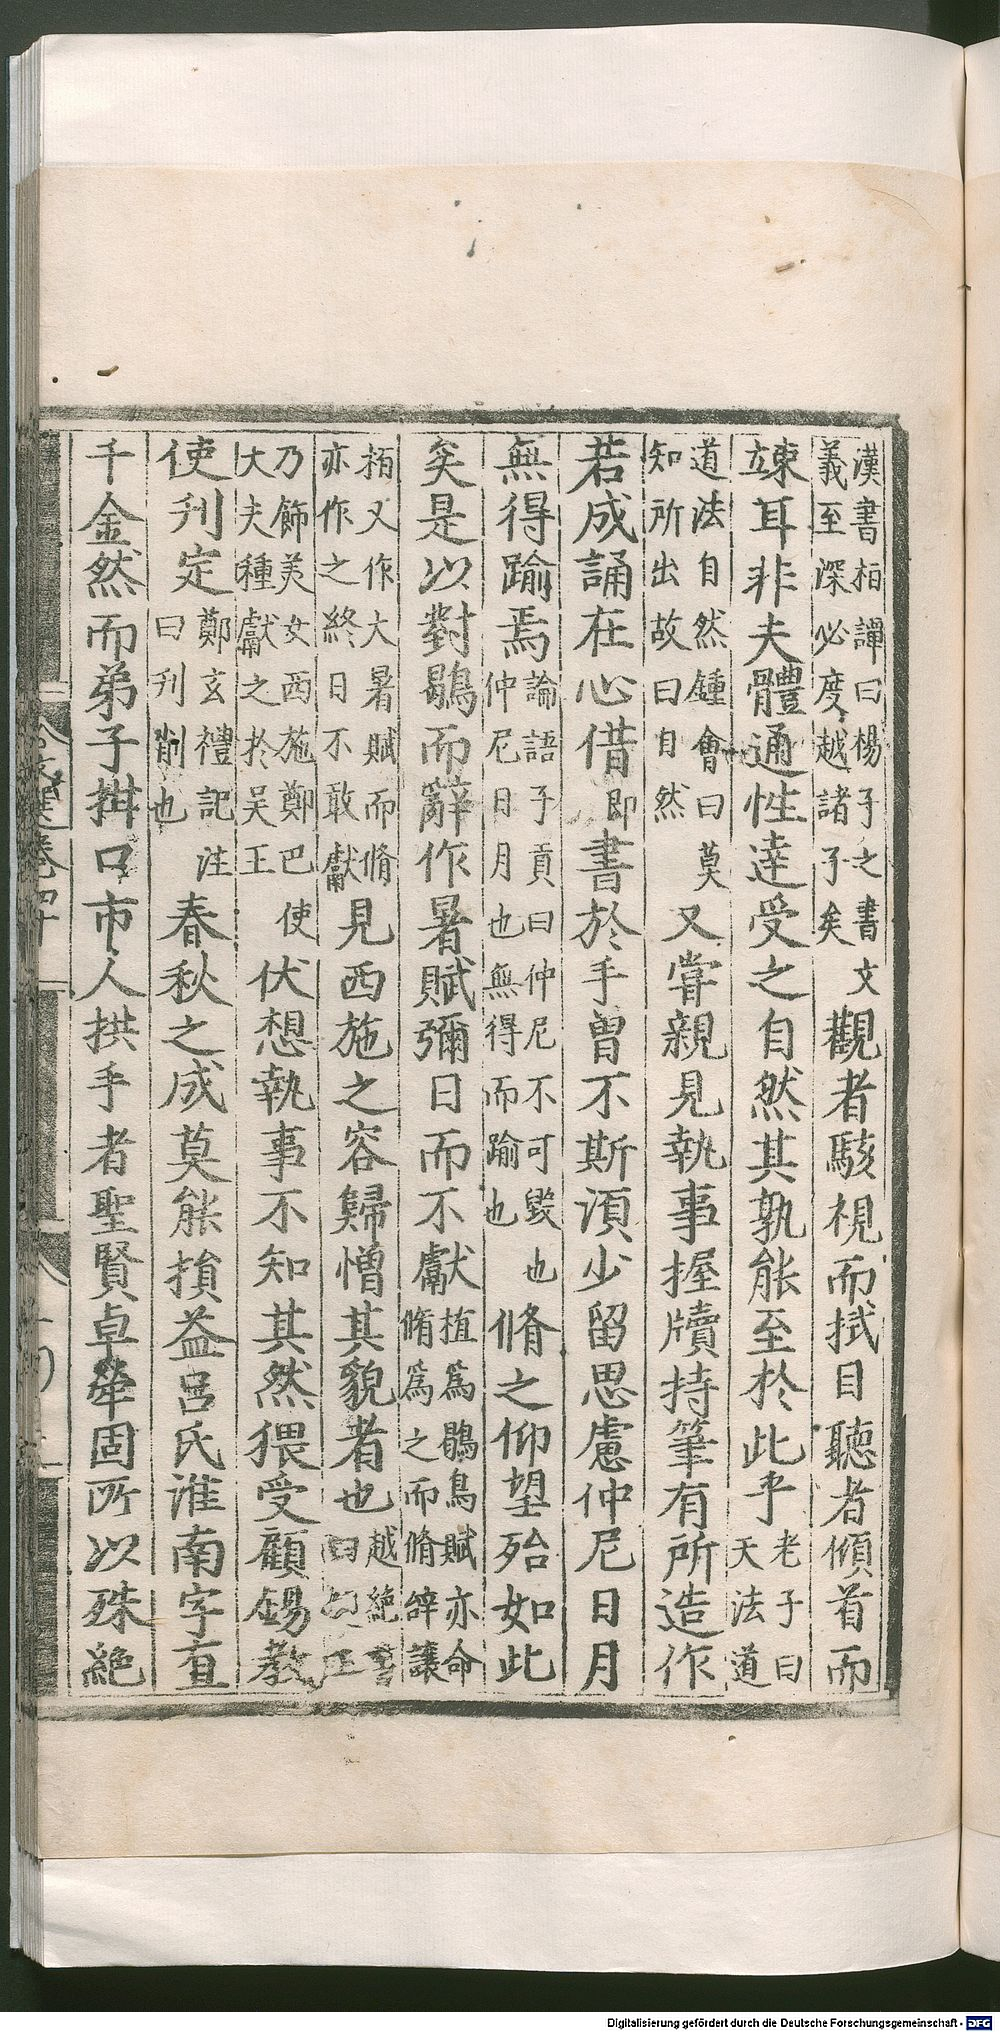 漢書柏譚曰楊子之書文義至深必度越諸子矣觀者駭視而拭目聽者傾首而
竦耳非夫體通性達受之自然其孰能至於此乎老子曰天法道
道法自然鍾會曰莫知所出故曰自然又嘗親見執事握牘持筆有所造作
若成誦在心借即書於手曽不斯湏少留思慮仲尼日月
無得踰焉論語子貢曰仲尼不可毀也仲尼日月也無得而踰也脩之仰望殆如此
矣是以對鶡而辭作暑賦彌日而不獻植為鶡鳥賦亦命脩為之而脩辭讓
栢又作大暑賦而脩亦作之終日不敢獻見西施之容歸憎其貌者也越絕書曰越王
乃飾美女西施鄭巴使大夫種獻之於吳王伏想執事不知其然猥受顧錫教
使刋定鄭玄禮記注曰刋削也春秋之成莫能損益呂氏淮南字直
千金然而弟子拑口市人拱手者聖賢卓犖固所以殊絕
文選卷四十
Digitalisierung gefördert durch die Deutsche Forschungsgemeinschaft - DFG